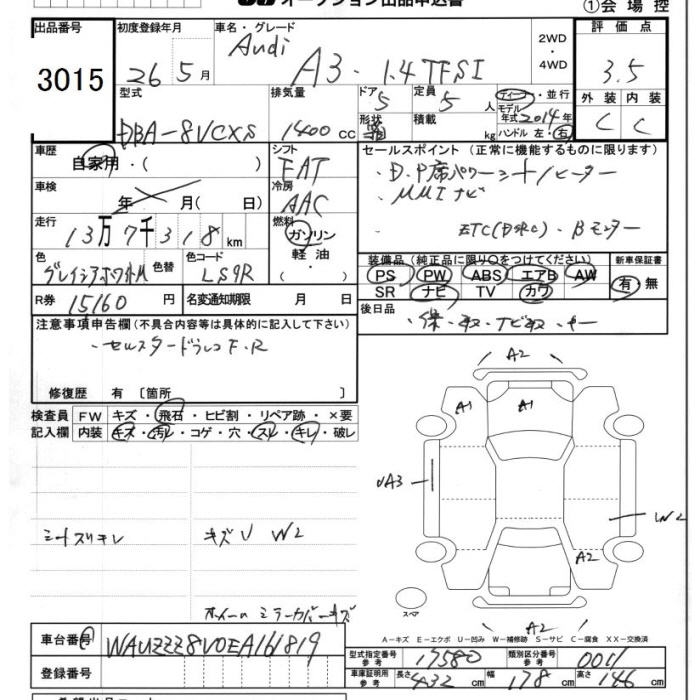 オークション出品申込書
①会場控
出品番号 初度登録年月 車名・グレード 評価点
3015 26年5月 Audi A3・1.4TFSI 2WD・4WD 3.5
型式 排気量 ドア 定員 ディーラー・並行 外装 内装
DBA-8VCXS 1400cc 5 5人 モデル年式2014年 C C
形状 積載 kg ハンドル 左・右
車歴 シフト セールスポイント (正常に機能するものに限ります)
自家用・( ) FAT ・D.P席パワーシート/ヒーター
車検 冷房 ・MMIナビ
年 月(日) AAC
走行 燃料 ETC(D席C)・Bモニター
13万7千318km ガソリン・軽油・
色 色替 色コード 装備品 (純正品に限り○をつけてください) 新車保証書
グレイシアホワイトM LS9R PS PW ABS エアB AW 有・無
SR ナビ TV カワ
R券 15160円 名変通知期限 月 日 後日品 ・保・取・ナビ取・キー
注意事項申告欄 (不具合内容等は具体的に記入して下さい)
・セルスタードラレコF.R
修復歴 有 〔箇所 〕
検査員 FW キズ・飛石・ヒビ割・リペア跡・×要
記入欄 内装 キズ・汚レ・コゲ・穴・スレ・キレ・破レ
A2
A1 A1
UA3
シートスリキレ キズU W2 W2
A2
スペア
ホイール ミラーカバーキズ A2
A-キズ E-エクボ U-凹み W-補修跡 S-サビ C-腐食 XX-交換済
車台番号 WAUZZZ8V0EA161819
型式指定番号 参考 17580 類別区分番号 参考 0011
登録番号 車庫証明用 参考 長さ 432cm 幅 178cm 高さ 146cm